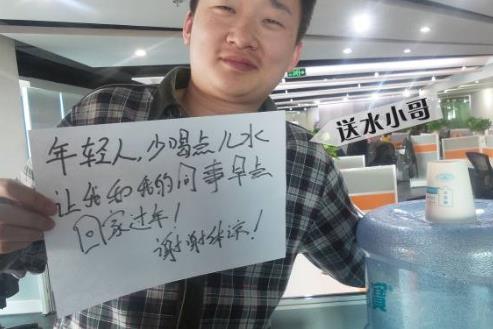 送水小哥
年轻人，少喝点儿水
让我和我的同事早点
回家过年！
谢谢体谅！
寶